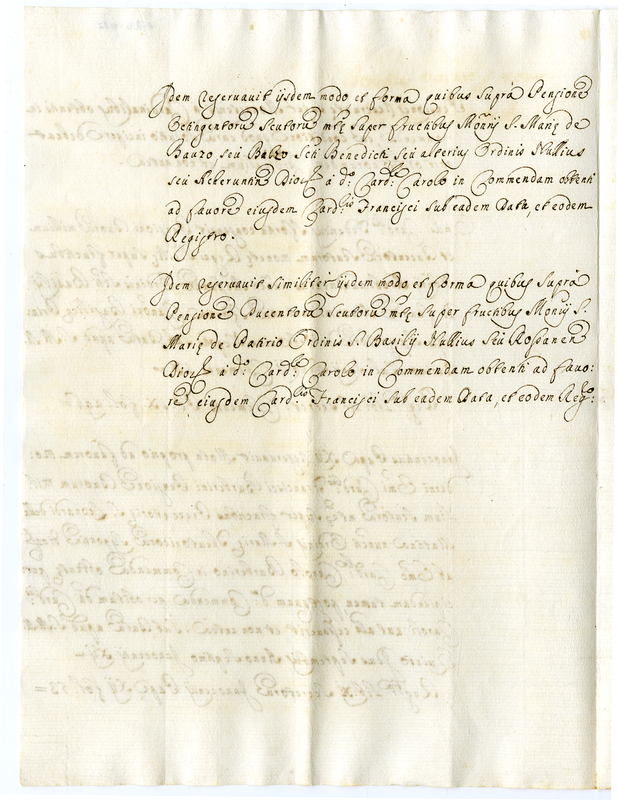 Idem reservavit ijsdem modo et forma quibus supra Pensione
Octingentorũ scutorũ mtẹ super fructibus Monrij S. Marię de
Bauzo seu Balzo Sti Benedicti seu alterius Ordinis Nullius
seu Acheruntiñ Dioc. à do. Cardle. Carolo in Commendam obtenti
ad favorẽ eiusdem Cardlis Francisci sub eadem Data, et eodem
Registro.
Idem reservavit similiter ijsdem modo et forma quibus supra
Pensionẽ Ducentorũ scutorũ mtẹ super fructibus Monrij S.
Marię de Patirio Ordinis S. Basilij Nullius seu Rossanen
Dioc. à do. Cardle. Carolo in Commendam obtenti ad favo:
rẽ eiusdem Cardlis Francisci sub eadem Data, et eodem Regro: